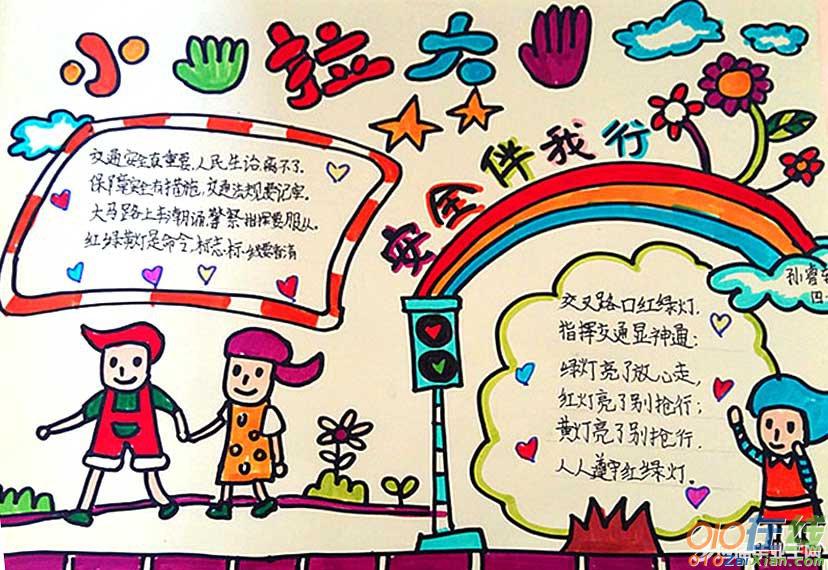 小拉大
安全伴我行
交通安全真重要,人民生活离不了.
保障安全有措施,交通法规要记牢.
大马路上车潮涌,警察指挥要服从.
红绿黄灯是命令,标志标线要看清
孙睿
四
交叉路口红绿灯,
指挥交通显神通;
绿灯亮了放心走,
红灯亮了别抢行;
黄灯亮了别抢行.
人人遵守红绿灯.
010在线
010zaixian.com